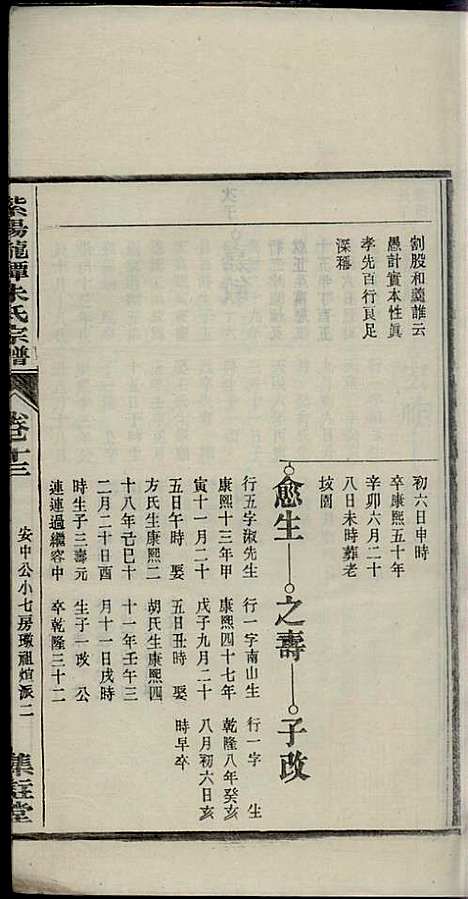 割股和羹誰云
愚計實本性眞
孝先百行良足
深穪
初六日申時
卒康熙五十年
辛卯六月二十
八日未時葬老
坟園
愈生 之壽 子改
行五字淑先生
康熙十三年甲
寅十一月二十
五日午時 娶
方氏生康熙二
十八年己巳十
二月二十日酉
時生子三壽元
連連過繼容中
行一字南山生
康熙四十七年
戊子九月二十
五日丑時 娶
胡氏生康熙四
十一年壬午三
月十一日戌時
生子一改 公
卒乾隆三十二
行一字 生
乾隆八年癸亥
八月初六日亥
時早卒
紫陽龍潭朱氏宗譜
卷之十三
安中公小七房瓊祖煊派二
集註堂